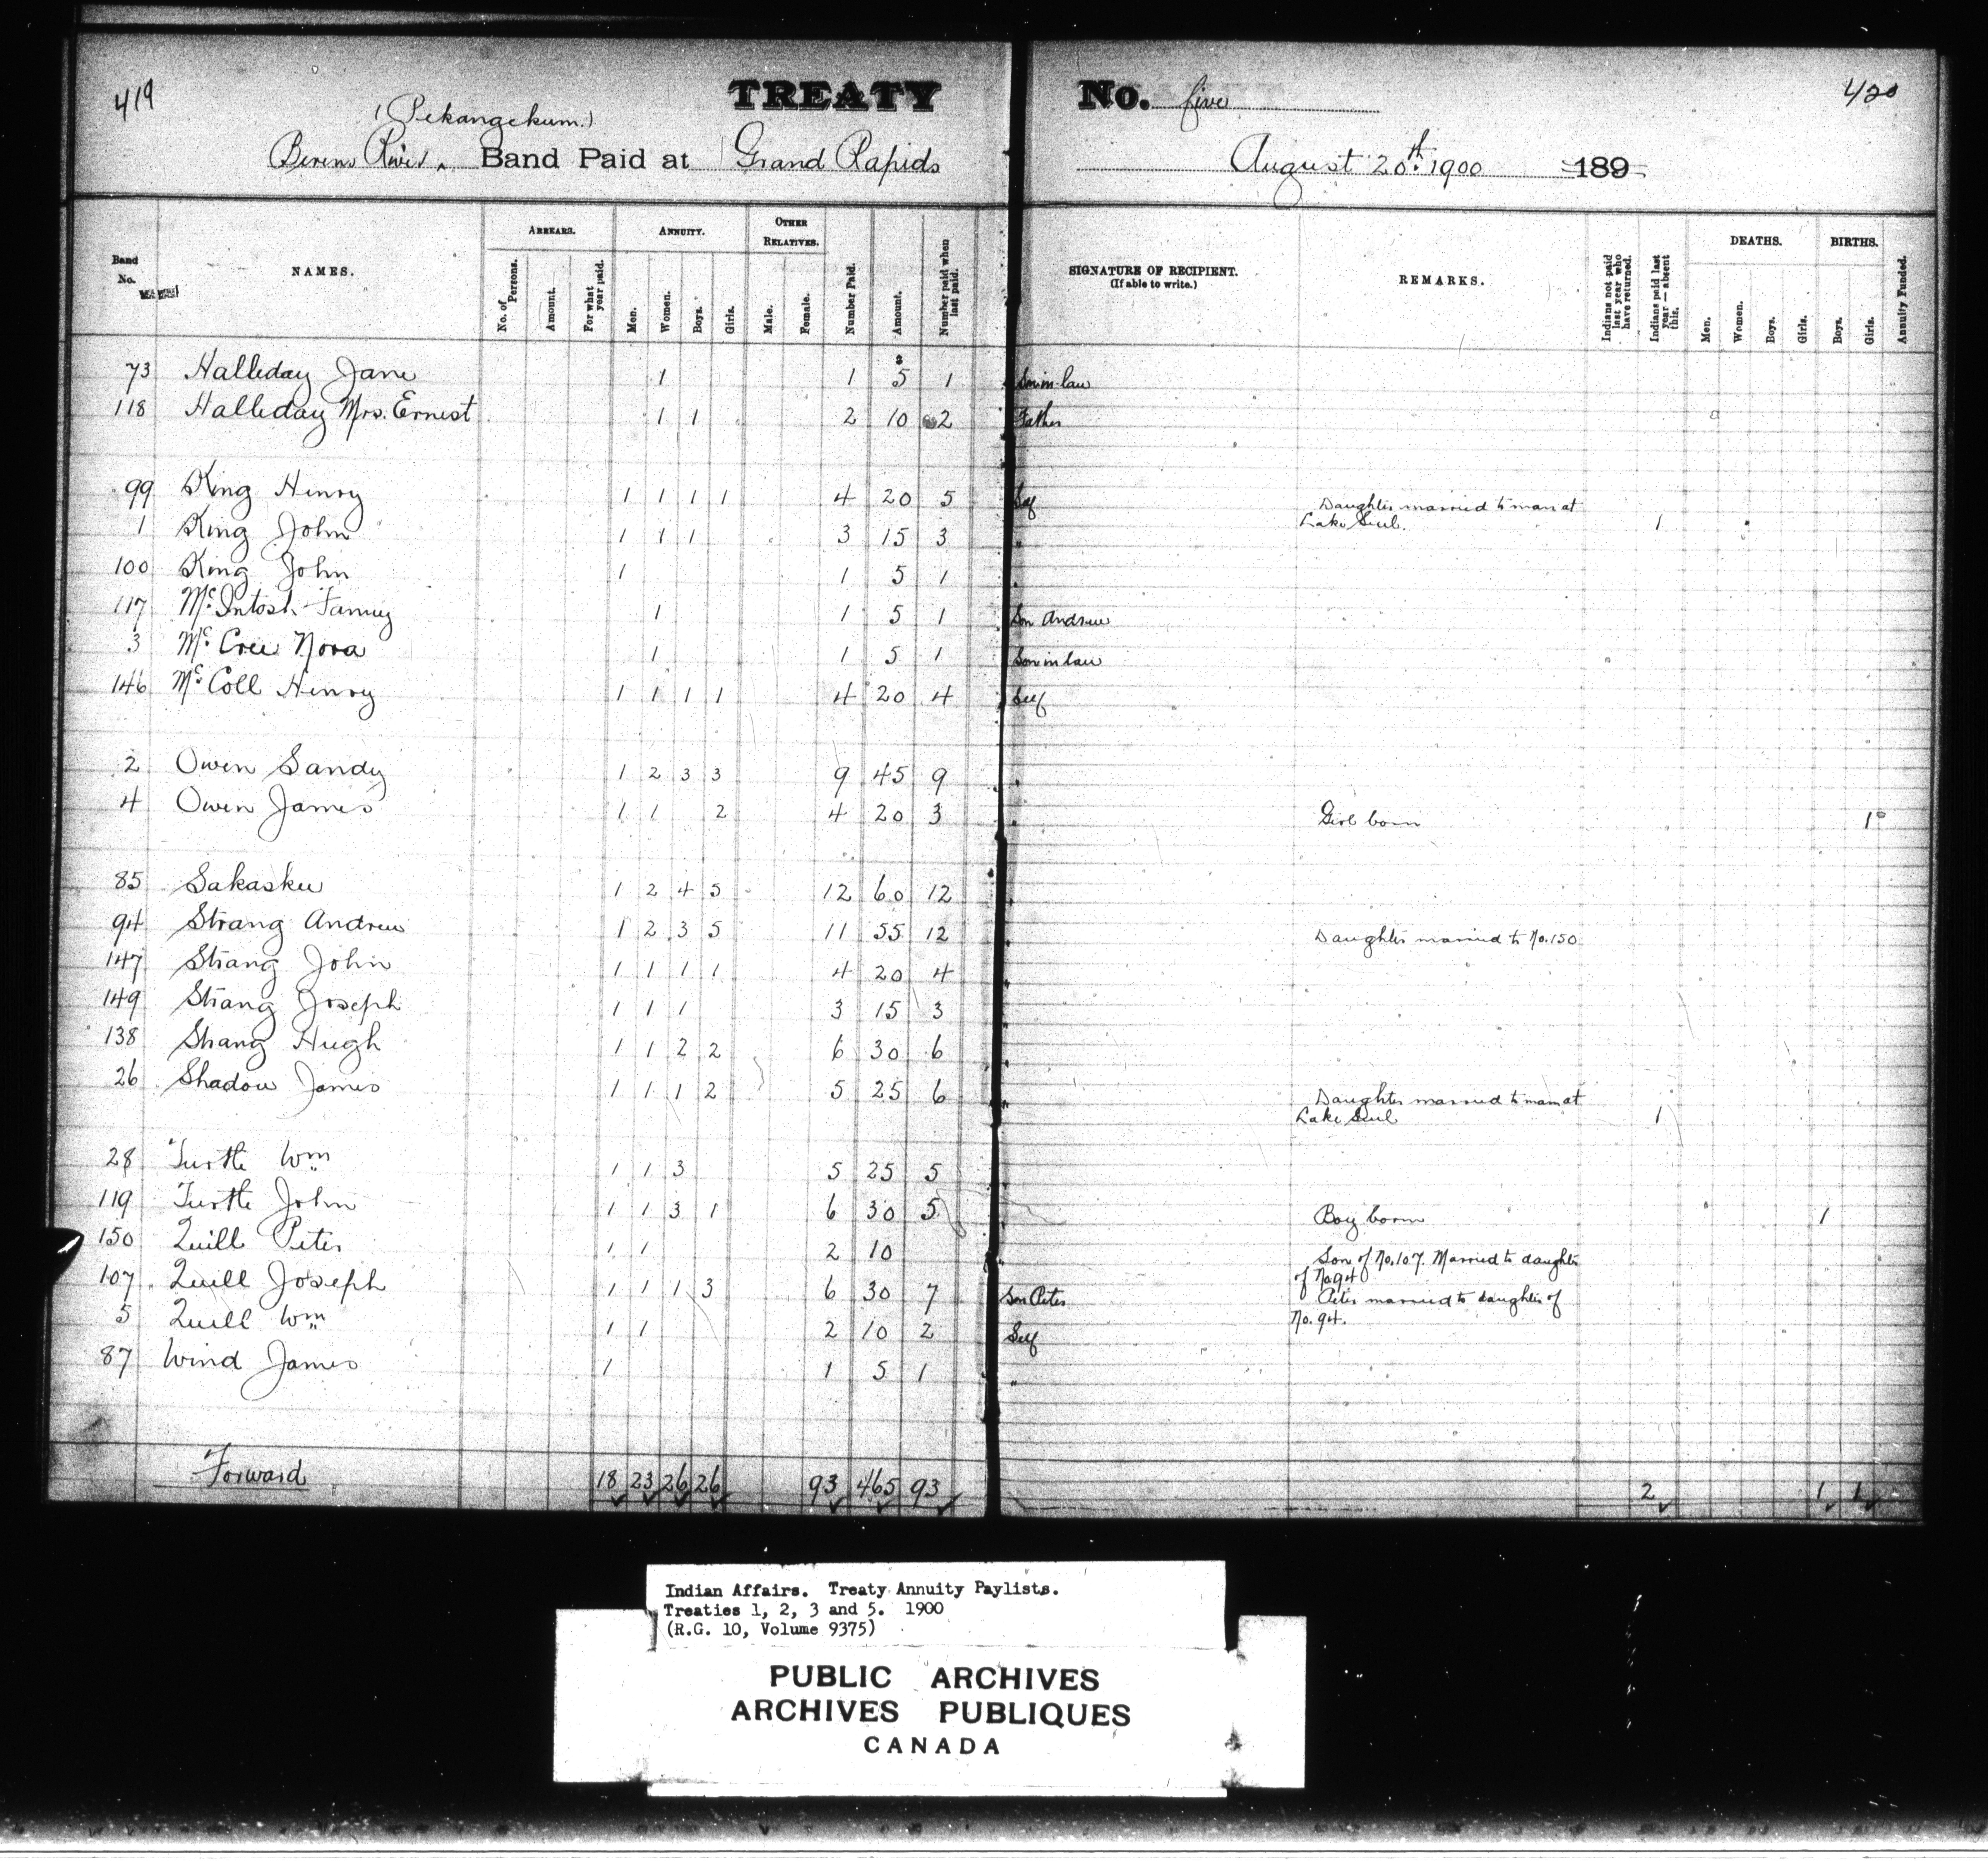 419
TREATY No. five
420
(Pekangekum.)
Berens River. Band Paid at Grand Rapids
August 20th 1900 189
Band No.
NAMES.
ARREARS.
No. of Persons.
Amount.
For what year paid.
ANNUITY.
Men.
Women.
Boys.
Girls.
OTHER RELATIVES.
Male.
Female.
Number Paid.
Amount.
Number paid when last paid.
SIGNATURE OF RECIPIENT.
(If able to write.)
REMARKS.
Indians not paid last year who have returned.
Indians paid last year—absent this.
DEATHS.
Men.
Women.
Boys.
Girls.
BIRTHS.
Boys.
Girls.
Annuity Funded.
73 Halliday Jane 1 1 $5 1 Son in law
118 Halliday Mrs. Ernest 1 1 2 10 2 Father
99 King Henry 1 1 1 1 4 20 5 Self Daughter married to man at
Lake Seul. 1
1 King John 1 1 1 3 15 3 "
100 King John 1 1 5 1 "
117 McIntosh Fanny 1 1 5 1 Son Andrew
3 McCree Nora 1 1 5 1 Son in law
146 McColl Henry 1 1 1 1 4 20 4 Self
2 Owen Sandy 1 2 3 3 9 45 9 "
4 Owen James 1 1 2 4 20 3 " Girl born 1
85 Sakaskee 1 2 4 5 12 60 12 "
94 Strang Andrew 1 2 3 5 11 55 12 " Daughter married to No. 150
147 Strang John 1 1 1 1 4 20 4 "
149 Strang Joseph 1 1 1 3 15 3 "
138 Strang Hugh 1 1 2 2 6 30 6 "
26 Shadow James 1 1 1 2 5 25 6 " Daughter married to man at
Lake Seul 1
28 Turtle Wm 1 1 3 5 25 5 "
119 Turtle John 1 1 3 1 6 30 5 " Boy born 1
150 Quill Peter 1 1 2 10 " Son of No. 107. Married to daughter
of No 94
107 Quill Joseph 1 1 1 3 6 30 7 Son Peter Peter married to daughter of
No. 94.
5 Quill Wm 1 1 2 10 2 Self
87 Wind James 1 1 5 1 "
Forward 18 23 26 26 93 465 93 2 1 1
Indian Affairs. Treaty Annuity Paylists.
Treaties 1, 2, 3 and 5. 1900
(R.G. 10, Volume 9375)
PUBLIC ARCHIVES
ARCHIVES PUBLIQUES
CANADA